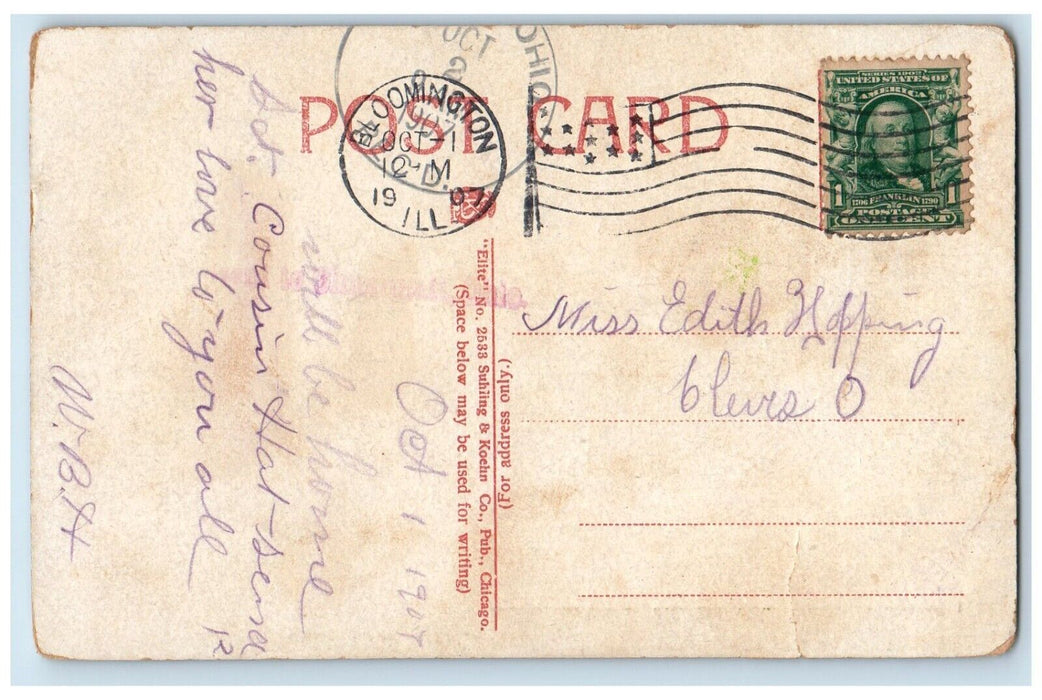 POST CARD
BLOOMINGTON
OCT-1
12-M
1907
ILL.
OHIO
OCT
SERIES 1902
UNITED STATES OF
AMERICA
1 1
1706 FRANKLIN 1790
POSTAGE
ONE CENT
Oct 1 1907
will be home
Sat. Cousin Hat-send
her love to you all
W.B.H
"Elite" No. 2533 Suhling & Koehn Co., Pub., Chicago.
(Space below may be used for writing)
(For address only.)
Miss Edith Hopping
Cleves O